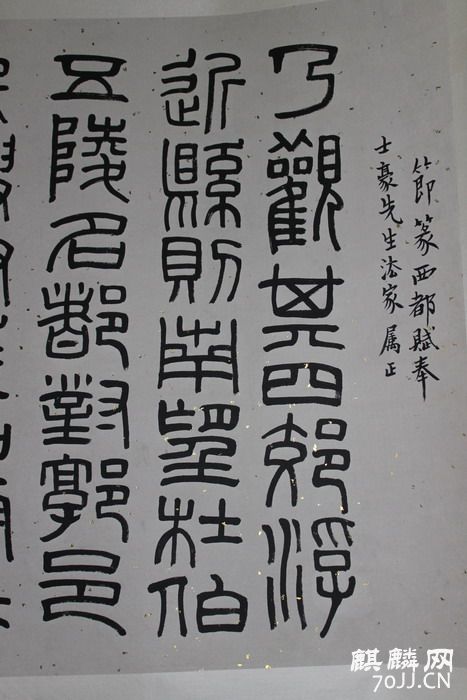 節篆西都賦奉
士豪先生法家屬正
乃觀其四郊浮
近縣則南望杜伯
五陵名都對郭邑
麒麟网
70JJ.CN